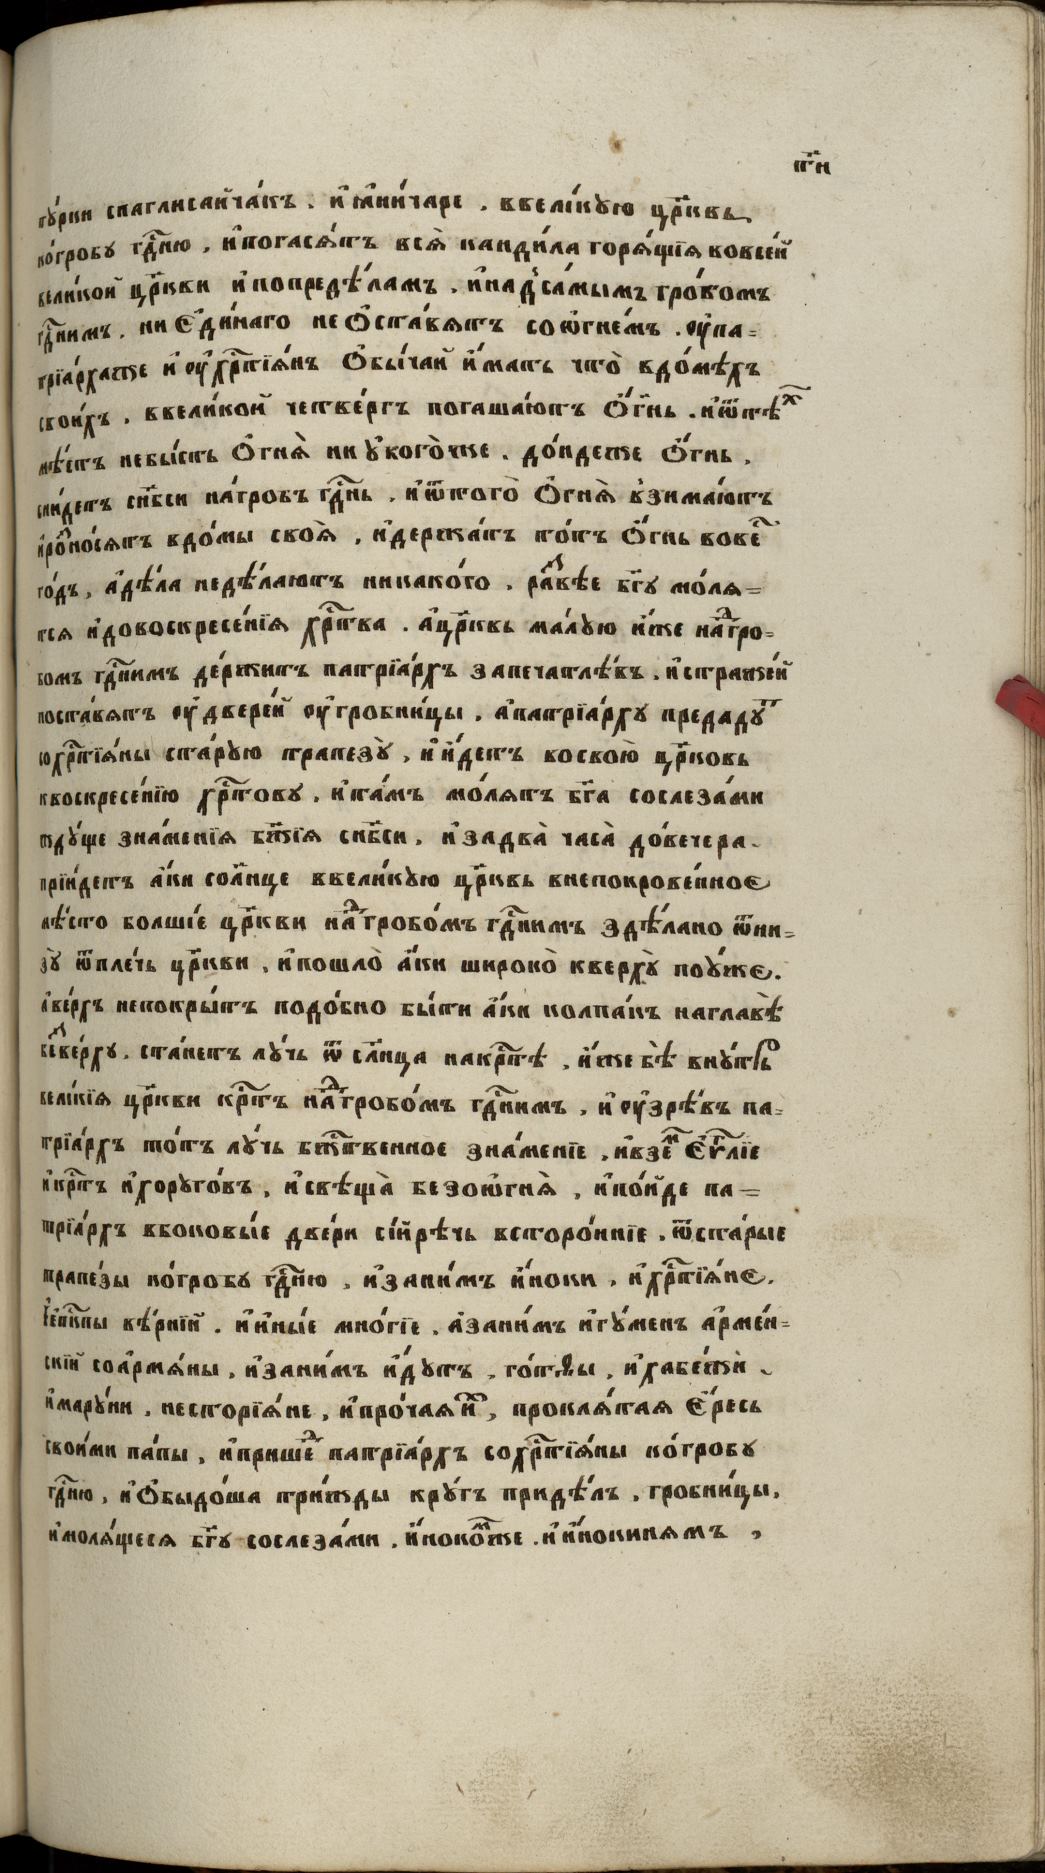 п҃и
ту́рки спаглисайча́къ . и҆ ꙗ҆ни́чаре . ввели́кую цр҃квь
ко́гробу гдⷭ҇ню , и҆погася́тъ вся̀ канди́ла горя́щїя вовсе́й
вели́кой цр҃кви и҆попредѣ́ламъ . и҆над̾са́мымъ гро́бомъ
гдⷭ҇нимъ . ни є҆ди́наго не ѡ҆ста́вятъ соѻ҆гне́мъ . ѹ҆па=
трїа́рхатже и҆ ѹ҆хрⷭ҇тїя́нъ ѻ҆бы́чай и҆́мать что̀ вдо́мѣхъ
свои́хъ . ввели́кой четве́ргъ погаша́ютъ ѻ҆́гнь . и҆ѿтѣⷯ
мѣ́стъ небы́сть ѻ҆гня̀ ни у҆кого̀же . до́ндеже ѻ҆́гнь ,
сни́детъ сн҃бси на́гробъ гдⷭ҇нь , и҆ѿтого̀ ѻ҆гня̀ взима́ютъ
и҆роⷥно́сятъ вдо́мы своя̀ , и҆держа́тъ то́тъ ѻ҆́гнь вовеⷭ҇
го́дъ , а҆дѣ́ла недѣ́лаютъ никако́го . ра́ⷥвѣе бг҃у мо́ля=
тся и҆довоскресе́нїя хрⷭ҇тва . а҆цр҃квь ма́лую и҆́же наⷣгро=
бомъ гдⷭ҇нимъ де́ржитъ патрїа́рхъ запечатлѣ́въ . и҆стра́жей
поста́вятъ ѹ҆двере́й ѹ҆гробни́цы . а҆патрїа́рху предаду́ⷮ
хрⷭ҇тїя́ны ста́рую трапезꙋ̀ , и҆ и҆́детъ косвою̀ цр҃ковь
квоскресе́нїю хрⷭ҇тову , и҆та́мъ мо́лятъ бг҃а сослеза́ми
жду́ще зна́менїя бж҃їя сн҃бси , и҆задва̀ часа̀ до́вечера .
прїи́детъ а҆́ки со́лнце ввели́кую цр҃квь внепокрове́нноє
мѣ́сто болшїе цр҃кви наⷣгробо́мъ гдⷭ҇нимъ здѣ́лано ѿни=
зу̀ ѿпле́чь цр҃кви , и҆пошло̀ а҆́ки широко̀ кверху̀ поу́же .
а҆ве́рхъ непокры́тъ подо́бно бы́ти а҆́ки колпа́къ наглавѣ̀
беⷥве́рху . ста́нетъ лу́чь ѿ сл҃нца накрⷭ҇тѣ̀ , и҆́же бѣ̀ внꙋ́трь
вели́кїя цр҃кви крⷭ҇тъ наⷣгробо́мъ гдⷭ҇нимъ , и҆ ѹ҆зрѣ́въ па=
трїа́рхъ то́тъ лу́чь бжⷭ҇твенное зна́менїе , и҆взеⷨ є҆ѵⷢ҇лїе
и҆крⷭ҇тъ и҆хоруго́въ , и҆свѣща̀ безоѻ҆гня̀ , и҆по́йде па=
трїа́рхъ вбоковы́е две́ри сїйрѣ́чь всторо́ннїе . ѿста́рые
трапе́зы ко́гробу гдⷭ҇ню , и҆зани́мъ и҆́ноки , и҆хрⷭ҇тїя́не .
вѣ́рнїй . и҆ и҆ны́е мно́гїе . а҆зани́мъ и҆гу́менъ а҆рме́н=
скїй соа҆рмя́ны , и҆зани́мъ и҆ду́тъ , го́тѳы , и҆хабе́жи .
и҆мару́ни , несторїя́не , и҆про́чая иⷯ , прокля́тая є҆́ресь
свои́ми па́пы , и҆прише́ⷣ патрїа́рхъ сохрⷭ҇тїя́ны ко́гробу
гдⷭ҇ню , и҆ѻ҆быдо́ша три́жды кру́гъ придѣ́лъ . гробни́цы .
и҆моля́щеся бг҃у сослеза́ми . и҆ноко́ⷨже . и҆ и҆нокинямъ ,